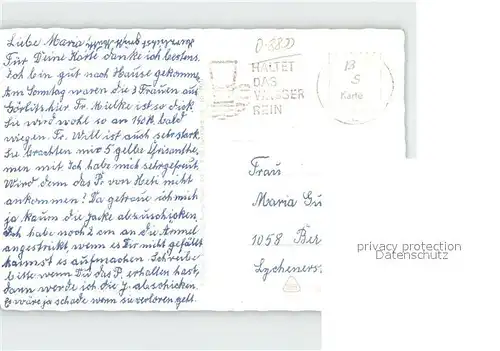 Liebe Maria!
Für Deine Karte danke ich bestens.
Ich bin gut nach Hause gekommen
Am Sonntag waren die 3 Frauen aus
Görlitz hier Fr. Mielke ist so dick
Sie wird wohl so an 140 ℔ bald
wiegen. Fr. Will ist auch sehr stark.
Sie brachten mir 5 gelbe Chrisanthe-
men mit. Ich habe mich sehr gefreut.
Wird denn das P. von Heti nicht
ankommen? Da getraue ich mich
ja kaum die Jacke abzuschicken.
Ich habe noch 2 cm an die Ärmel
angestrickt, wenn es Dir nicht gefällt
kannst es aufmachen. Schreibe
bitte wenn Du das P. erhalten hast,
dann werde ich die J. abschicken.
Es wäre ja schade wenn sie verloren geht.
HALTET
DAS
WASSER
REIN
13
S
Karte
Frau
Maria Gu
1058 Ber
Lychenerst
privacy protection
Datenschutz